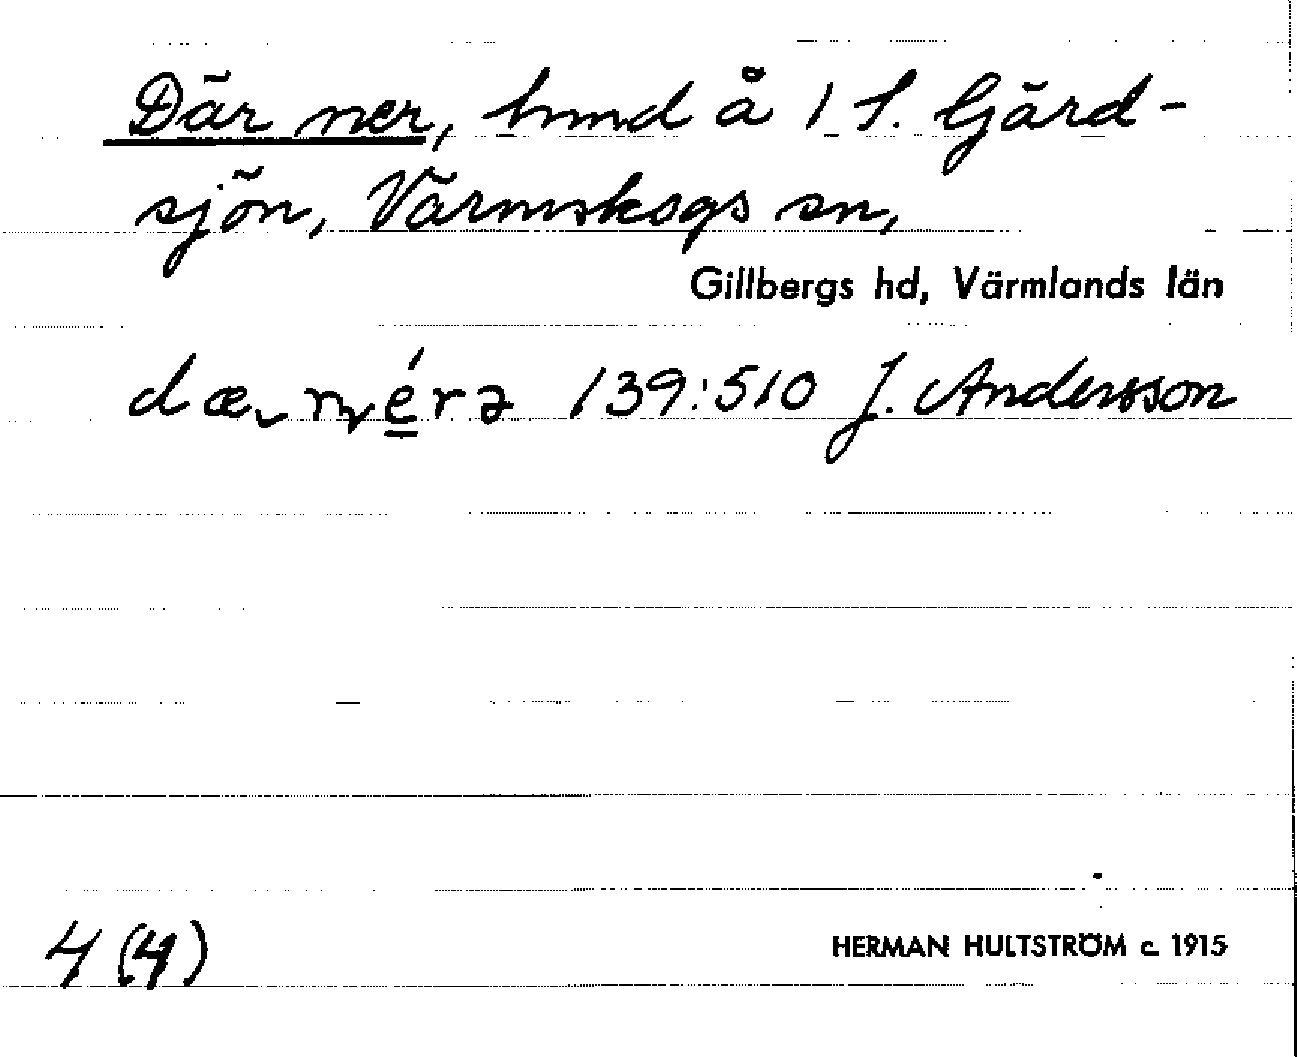 Där ner, hmd å 1 S. Gärd-
sjön, Värmskogs sn,
Gillbergs hd, Värmlands län
139:510 J. Andersson
4 (4)
HERMAN HULTSTRÖM c. 1915